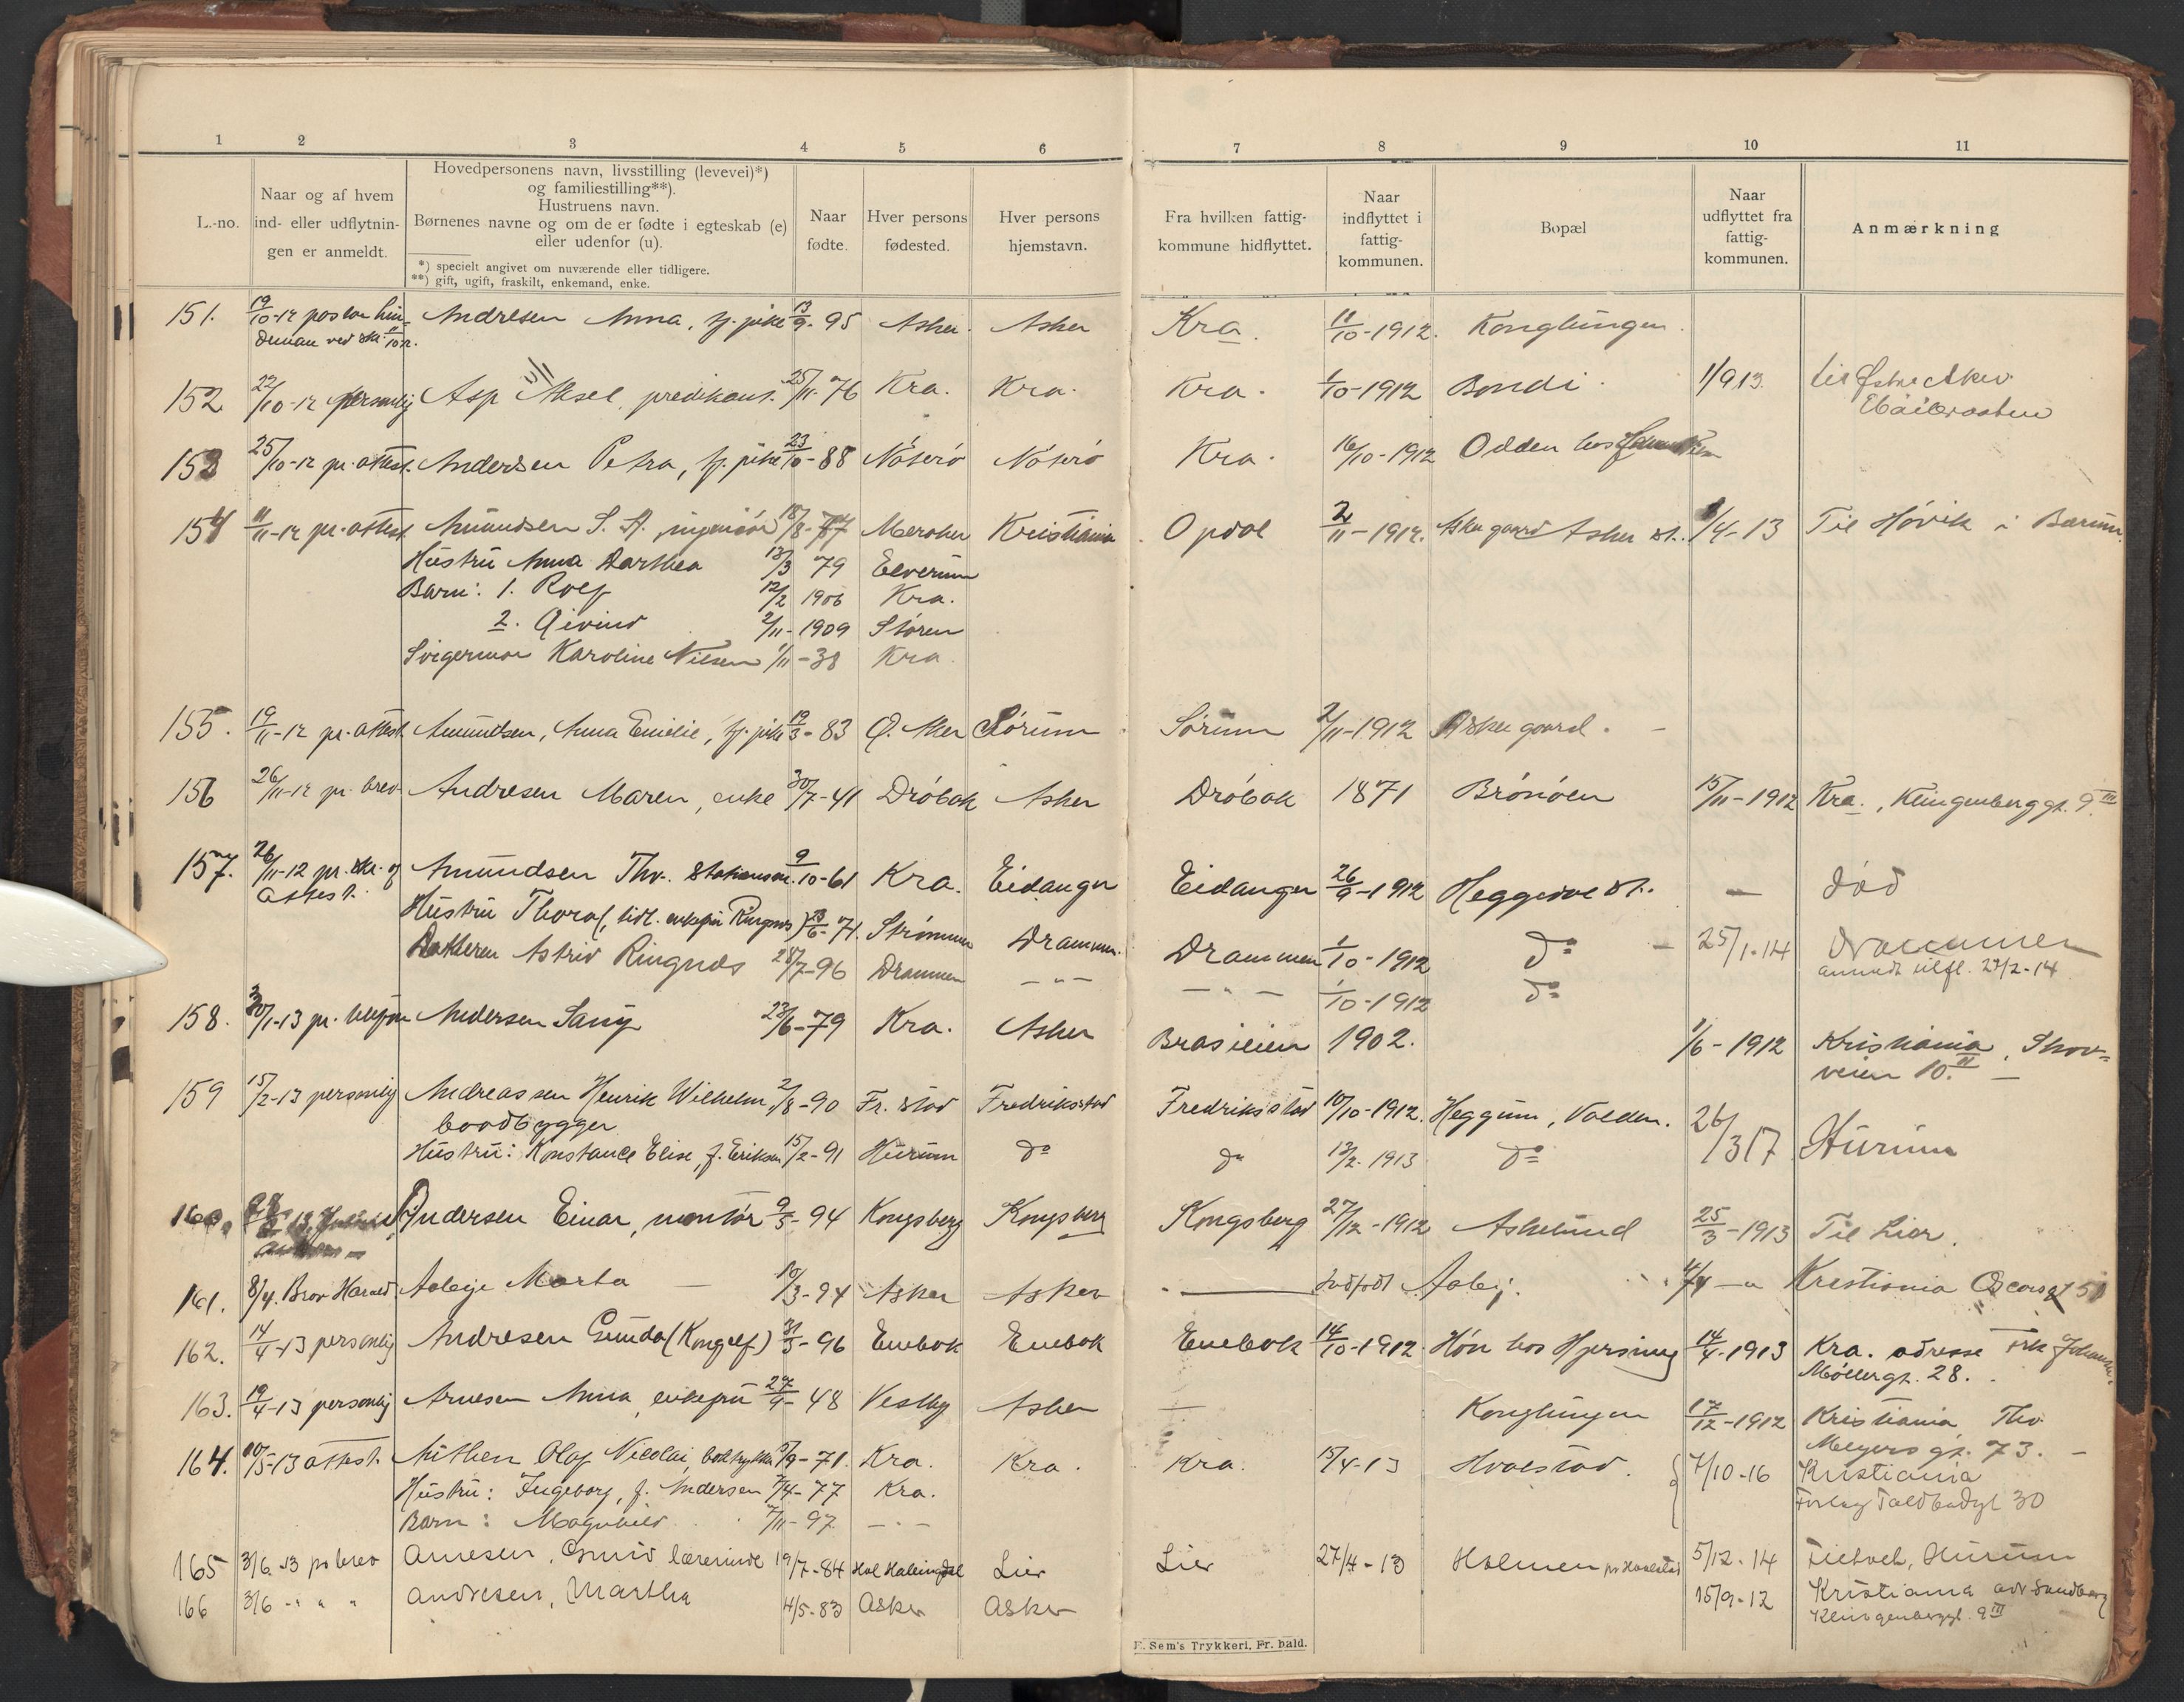 1 2 3 4 5 6 7 8 9 10 11
L.-no.
Naar og af hvem
ind- eller udflytnin-
gen er anmeldt.
Hovedpersonens navn, livsstilling (levevei)*)
og familiestilling**).
Hustruens navn.
Børnenes navne og om de er fødte i egteskab (e)
eller udenfor (u).
*) specielt angivet om nuværende eller tidligere.
**) gift, ugift, fraskilt, enkemand, enke.
Naar
fødte.
Hver persons
fødested.
Hver persons
hjemstavn.
Fra hvilken fattig-
kommune hidflyttet.
Naar
indflyttet i
fattig-
kommunen.
Bopæl
Naar
udflyttet fra
fattig-
kommunen.
Anmærkning
151. 19/10-12 Andresen Anna, tj. pike 13/9-95 Asker. Asker Kra. 11/10-1912. Konglungen.
152 22/10-12 personlig Asp Aksel, predikant. 25/11-76 Kra. Kra. Kra. 1/10-1912 Bondi. 1/9 13. til Østre Aker
153 25/10-12 pr. attest. Andersen Petra, tj. pike 23/10-88 Nøterø Nøterø Kra. 16/10-1912 Odden hos
154 11/11-12 pr. attest Amundsen S. A., ingeniør 18/8-77 Meraker Kristiania Opdal 2/11-1912. Asker gaard Asker st. 1/4-13 Til Høvik i Bærum.
Hustru Anna Dorthea 13/3 79 Elverum
Barn: 1. Rolf 12/2 1906 Kra.
2. Eivind 2/11-1909 Støren
Svigermor Karoline Nilsen 1/11-38 Kra.
155. 19/11-12 pr. attest. Amundsen, Anna Emilie, tj. pike 19/3-83 Ø. Aker Sørum Sørum 2/11-1912 Asker gaard. -
156 26/11-12 pr. brev Andresen Maren, enke 30/7-41 Drøbak Asker Drøbak 1871 Brønøen 15/11-1912 Kra., Klingenberggt. 9 III
157. 26/11-12 pr. skr. og Amundsen Thv. Stationsm. 9/10-61 Kra. Eidanger Eidanger 26/9-1912 Heggedal st. — død
attest.
Hustru Thora (, tidl. enkefru Ringnes) 23/6-71. Strømmen Drammen. Drammen 1/10-1912 do - 25/1-14 Drammen
Datteren Astrid Ringnes 28/7-96 Drammen — " — — " — 1/10-1912 do anmeldt tilfl. 24/2-14
158. 30/1-13 pr. telefon Andersen 23/6-79 Kra. Asker Brasilien 1902. 1/6-1912 Kristiania, Skov-
veien 10. II —
159 15/2-13 personlig Andreassen Henrik Wilhelm, 2/8-90 Fr. stad Fredriksstad Fredriksstad 10/10-1912. Heggum, Valden. 26/3 17 Hurum
baadbygger
Hustru: Konstance Elise, f. Eriksen 15/2-91 Hurum do do 13/2-1913 do
160. Andersen Einar, montør 9/5-94 Kongsberg Kongsberg Kongsberg 27/12-1912 Askelund 25/3-1913 Til Lier.
161. 8/4. Bror Harald. Aabye Marta — 10/3-94 Asker Asker — Indfødt Aaby. 4/4 — " Kristiania Oscarsgt 51
162. 14/4-13 personlig Andresen Gunda (Kongelf) 31/3-96 Enebak Enebak Enebak 14/10-1912. Høn hos Hjersing 14/4-1913 Kra. adresse frk
Møllergt. 28.
163. 19/4-13 personlig Arnesen Anna, enkefru 27/4-48 Vestby Asker — Konglungen 17/12-1912 Kristiania Thv.
Meyers gt. 73. —
164. 10/5-13 attest. Aithen Olaf Nicolai, 5/9-71. Kra. Kra. Kra. 15/4-13 Hvalstad. 7/10-16 Kristiania
Hustru: Ingeborg, f. Andersen 7/4-77 Kra.
Toldbodgt 30
Barn: Magnhild 7/11-97 — " —
165 3/6-13 pr brev Arnesen, Gunvid lærerinde 19/7-84 Hol Hallingdal Lier Lier 27/4-13 Holmen pr Hvalstad 5/12-14 Filtvet, Hurum
166 3/6 - " " " Andresen, Martha 4/5-83 Asker Asker 15/9-12 Kristiania adr Sandberg
Klingenberggt. 9 III
E. Sem's Trykkeri, Fr. hald.